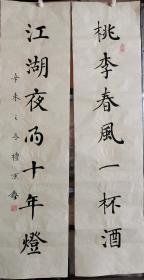 桃李春風一杯酒
江湖夜雨十年燈
辛未之冬